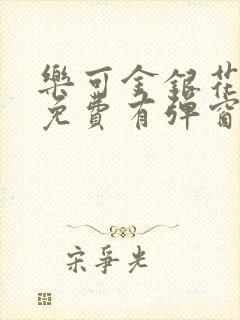 樂可金銀花
免費有彈窗
宋爭光